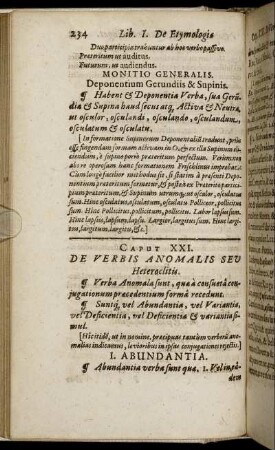 234 Lib. I. De Etymologia
Duo participia trahuntur ab hoc verbo passivo.
Præteritum ut auditus.
Futurum, ut audiendus.
MONITIO GENERALIS.
Deponentium Gerundiis & Supinis.
¶ Habent & Deponentia Verba, sua Gerũ-
dia & Supina haud secus atq; Activa & Neutra,
ut osculor, osculandi, osculando, osculandum,
osculatum & osculatu.
[In formatione Supinorum Deponentalũ tradunt, pri-
us esse fingendam formam activam in O, & ex illa Supinum ili-
ciendum, à supino porrò præteritum perfectum. Verùm
abere operosam hanc formationem Priscianus imperat.
Cum longè facilior methodus sit, si statim à præsenti Depo-
nentium præteritum formetur, & postea ex Præterito partici-
pium præteritum, & utrumq; supinum. Ut osculor osculatus
sum. Hinc osculatus, osculatum, osculatu. Polliceor, pollicitus
sum. Hinc Pollicitus, pollicitum, pollicitu. Labor lapsus sum.
Hinc lapsus, lapsum, lapsu. Largior, largitus sum. Hinc largi-
tus, largitum, largitu, &c.]
CAPUT XXI.
DE VERBIS ANOMALIS SEU
Heteroclitis.
¶ Verba Anomala sunt, quæ à consuetâ con-
jugationum præcedentium formâ recedunt.
¶ Suntq́; vel Abundantia, vel Variantia,
vel Deficientia, vel Deficientia & variantia si-
mul.
[Hic itidẽ, ut in nomine, præcipuas tantùm verborũ ano-
malias indicamus, levioribus in ipsas conjugationes rejectis.]
I. ABUNDANTIA.
¶ Abundantia verba sunt quæ. 1. Vel in eâ-
dem